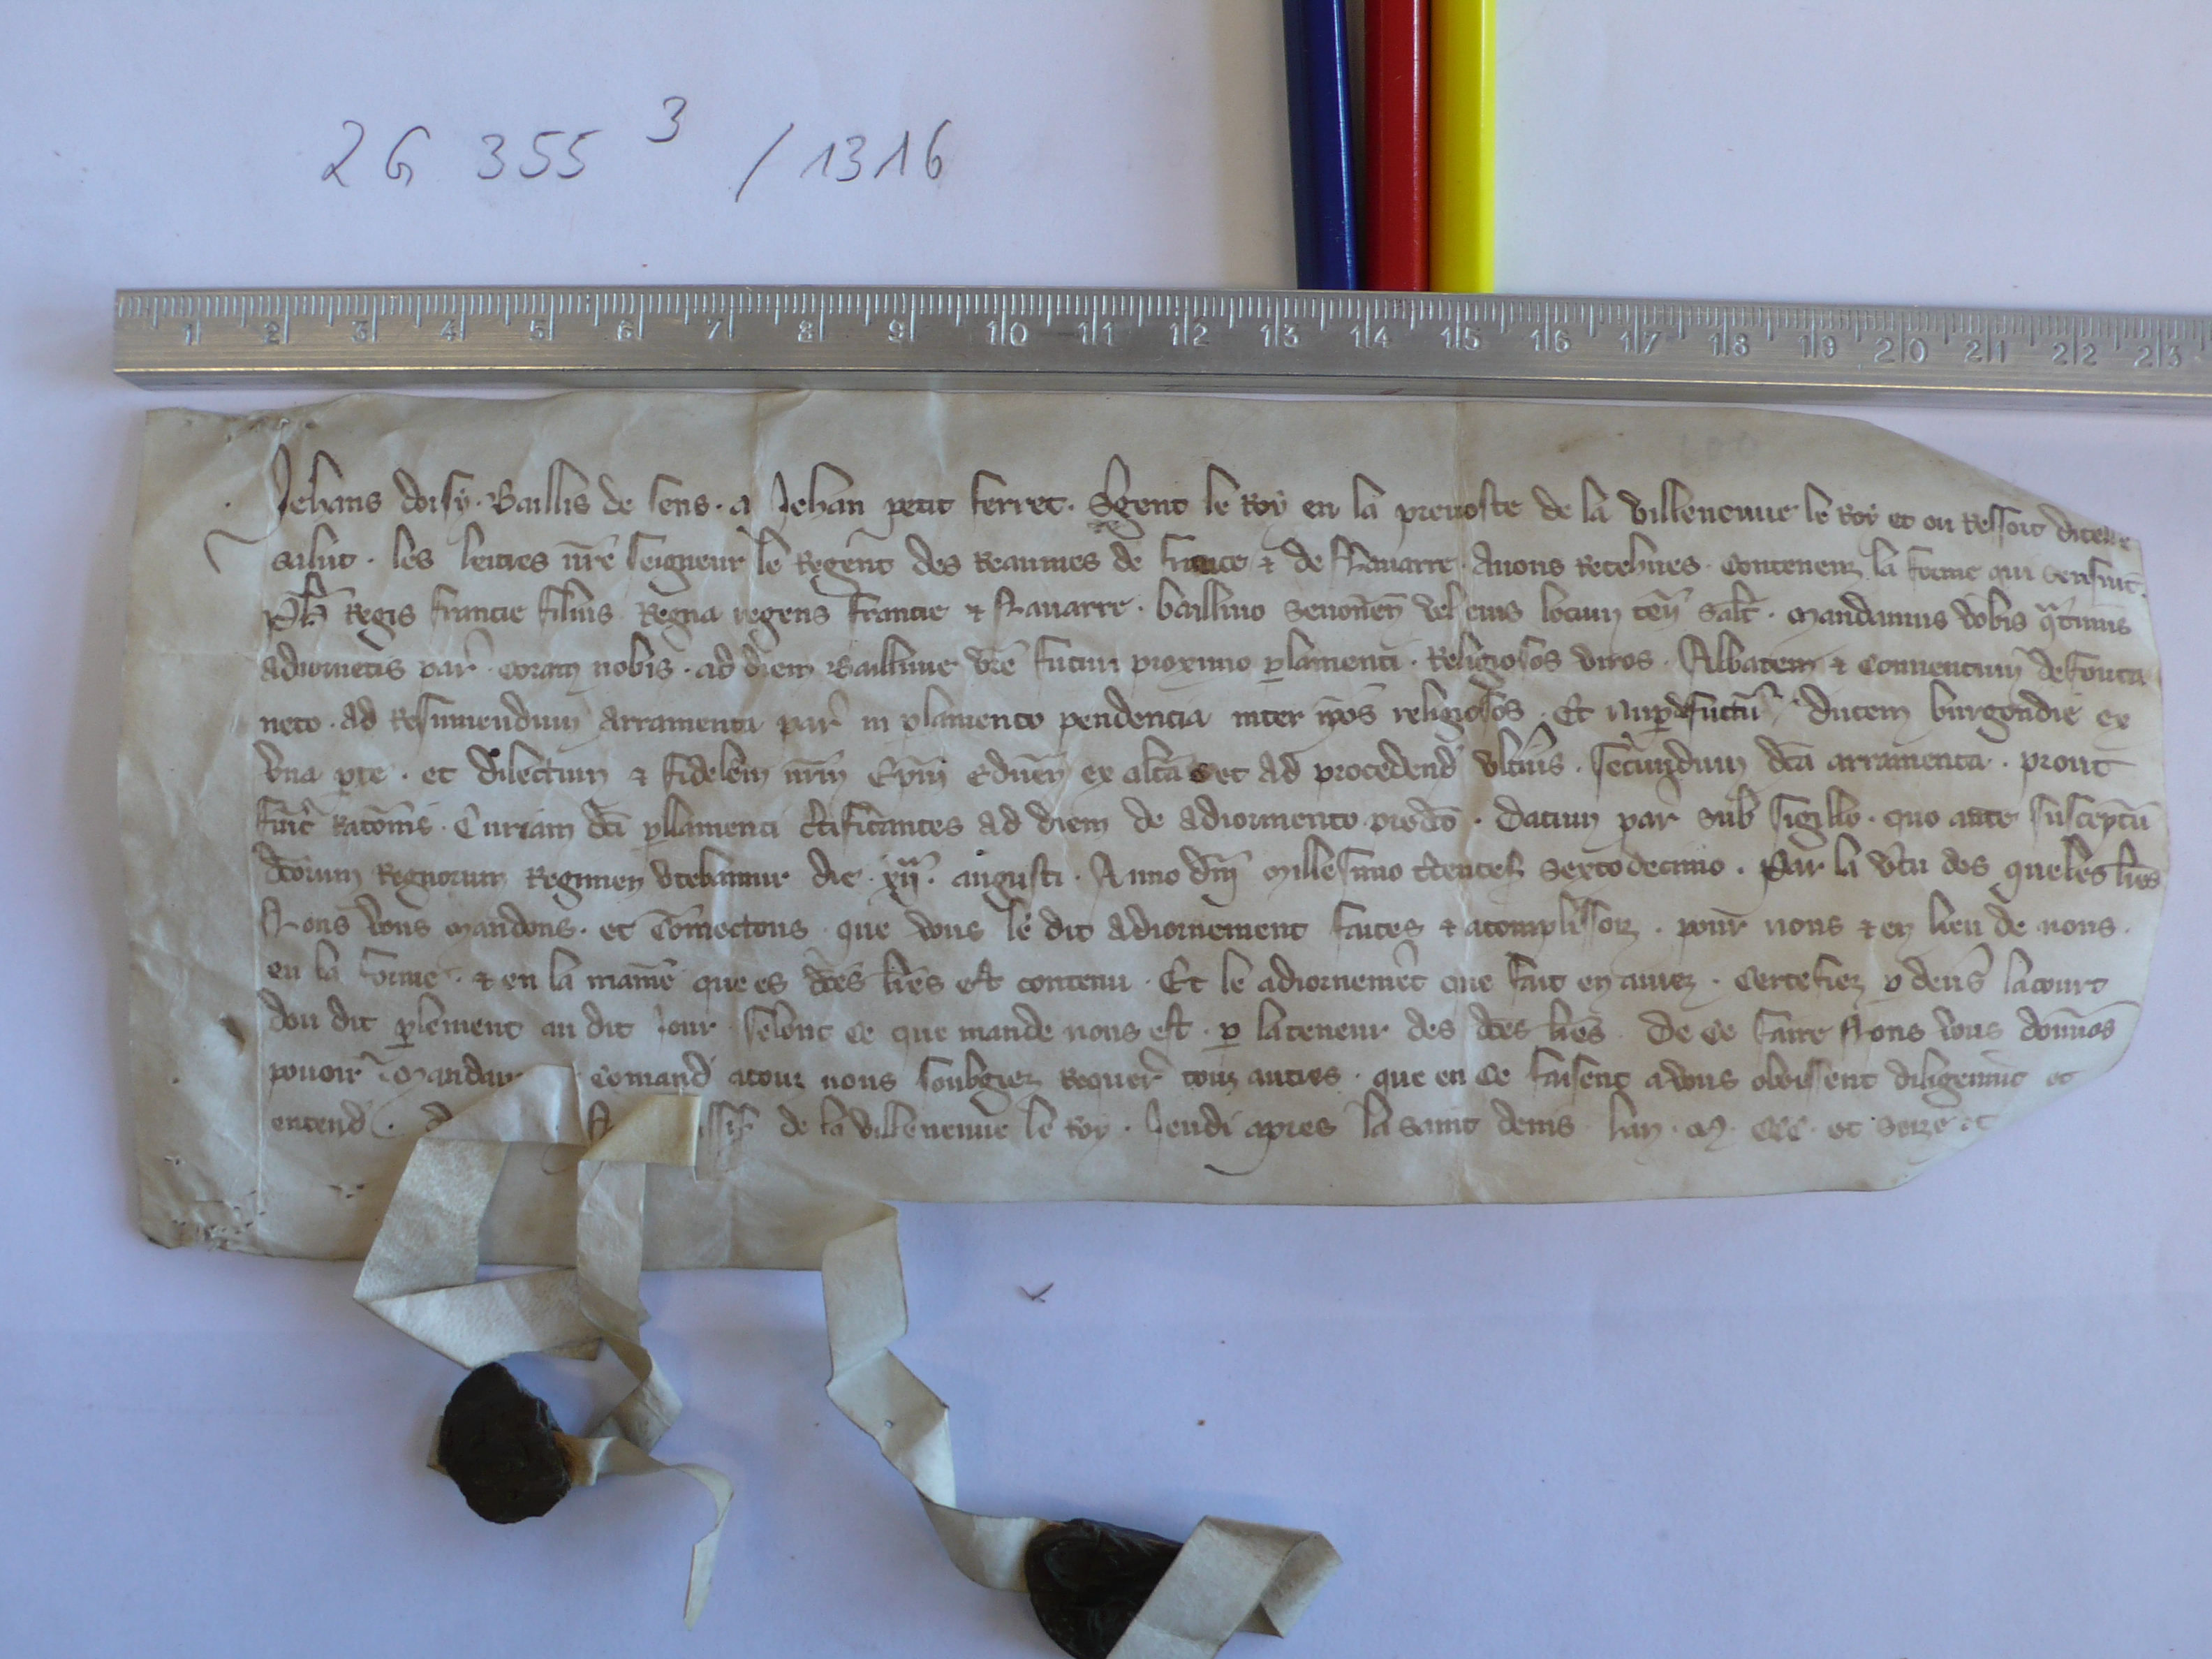 2G 355 3 / 1316
1 2 3 4 5 6 7 8 9 10 11 12 13 14 15 16 17 18 19 20 21 22 23
Jehans doisy. Baillis de sens. a Jehan petit ferret. Sergent le Roy en la prevoste de la villeneuue le Roy et ou Ressort dicelle
salut. les lettres nrē seigneur le Regent des Reaumes de france & de Nauarre. Auons Recehues. Contenenz la forme qui sensuit.
Ph̄ Regis francie filius Regna regens francie & Nauarre. baillivo senonen̄ vel eius locum ten̄ salt̄. Mandamus vobis qatinus
adiornetis par̄. coram nobis. ad diem Baillivie vrē futuri proximo plamenti. Religiosos viros. Abbatem & Conuentum de fonta
neto. ad Resumendum arramenta par̄ in plamento pendencia inter ip̄os religiosos. Et nup defūctū Ducem burgondie ex
vna pte. et dilectum & fidelem nrm̄ Ep̄m Eduen̄ ex altā et ad procedend̄ vlt̄ius. secundum dc̄a arramenta. prout
fuit̄ Rac̄onis. Curiam dc̄i pllamenti c̄tificantes ad diem de adiornmento predc̄o. Datum par̄ sub sigillo. quo ante susceptū
dc̄orum Regnorum Regimen vtebamur die. xij. augusti. Anno dn̄i Millesimo t̄centes̄ sextodecimo. Par la v̄tu des queles l̄res
Nous vous mandons. et Com̄ectons. que vous le dit adiornement faites & acomplissoiz. pour nous & en lieu de nous.
en la forme. & en la manīe que es dc̄es l̄res est contenu. Et le adiornemēt que fait en aurez. Certefiez p deu̅s la court
dou dit plement au dit Jour selont ce que mande nous est. p la teneur des dc̄es l̄res. De ce faire Nous vous donnōs
pouoir Mandan comand̄ a touz nous soubgiez Requer̄ touz autres. que en ce faisent a vous obeissent diligemm̄t et
entend̄. de la villeneuue le Roy. Jeudi apres la saint denis lan. M. CCC. et seze